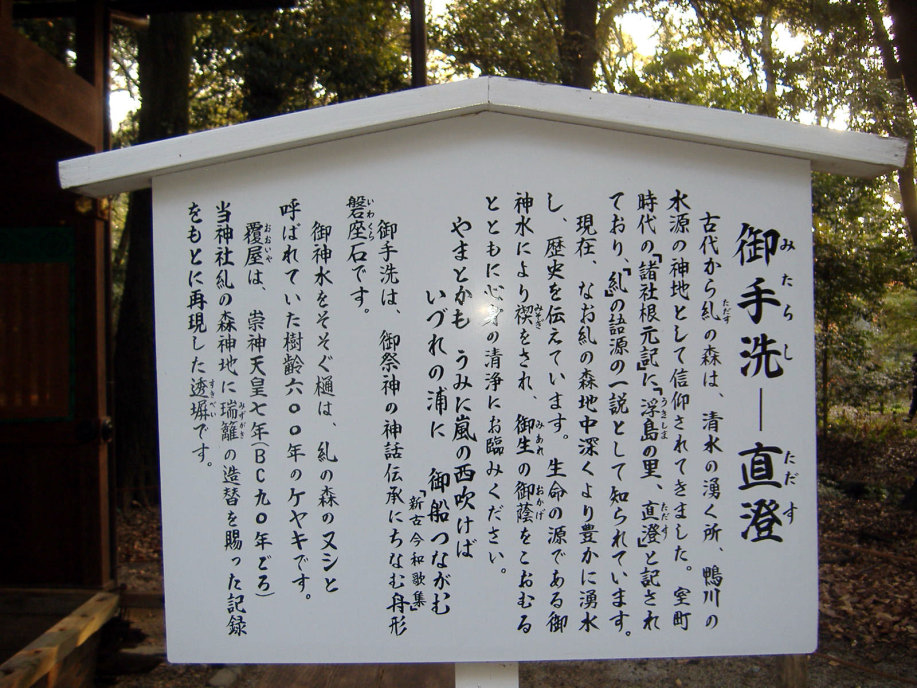 御手洗―直澄
みたらし
ただす
古代から糺の森は、清水の湧く所、鴨川の
ただす
水源の神地として信仰されてきました。室町
時代の『諸社根元記』に「浮島の里、直澄」と記され
うきしま
ただす
ており、『糺』の語源の一説として知られています。
現在、なお糺の森地中深くより豊かに湧水
し、歴史を伝えています。生命の源である御
神水により禊をされ、御生の御蔭をこおむる
みそぎ
みあれ
おかげ
とともに心身の清浄にお臨みください。
やまとかも うみに嵐の西吹けば
いづれの浦に 御船つながむ
「新古今和歌集」
御手洗は、御祭神の神話伝承にちなむ舟形
磐座石です。
いわくら
御神水をそそぐ樋は、糺の森のヌシと
呼ばれていた樹齢六〇〇年のケヤキです。
覆屋は、崇神天皇七年(BC九〇年ごろ)
おおいや
当神社糺の森神地に瑞籬の造替を賜った記録
みずがき
をもとに再現した透塀です。
すきべい